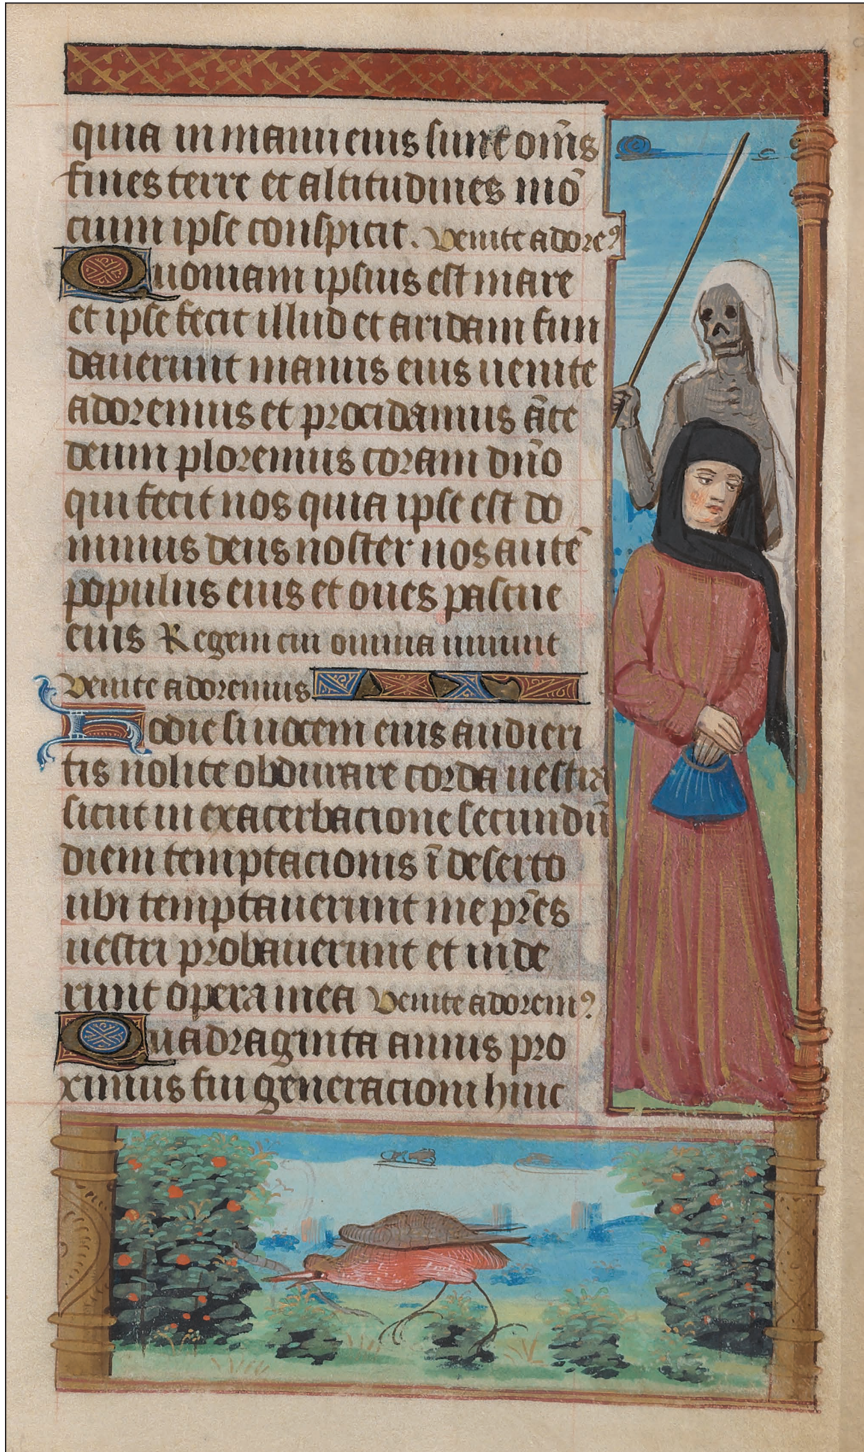 quia in manu eius sunt om̅s
fines terre et altitudines mō
cium ipse conspicit. Venite adoreꝰ
Quoniam ipsius est mare
et ipse fecit illud et aridam fun
dauerunt manus eius uenite
adoremus et procidamus ān̄te
deum ploremus coram dn̄o
qui fecit nos quia ipse est do
minus deus noster nos autē
populus eius et oues pascue
eius Regem cui omnia uiuunt
Venite adoremus
Hodie si uocem eius audieri
tis nolite obdurare corda uestra
sicut in exacerbacione secundū
diem temptacionis ī deserto
ubi temptauerunt me pr̄es
uestri probauerunt et uide
runt opera mea Venite adoremꝰ
Quadraginta annis pro
ximus fui generacioni huic